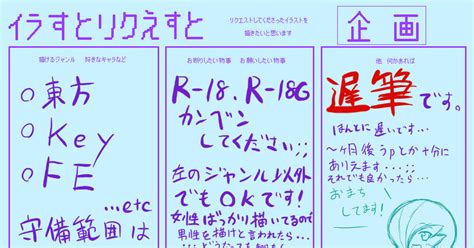 イラすとリクえすと
リクエストしてくださったイラストを
描きたいと思います
企画
描けるジャンル　好きなキャラなど
○東方
○Key
○FE
…etc
守備範囲は
お断りしたい物事　お願いしたい物事
R-18、R-18G
カンベン
してください;;
左のジャンル以外
でもOKです!
女性ばっかり描いてるので
男性を描けと言われたら…
他　何かあれば
遅筆です。
ほんとに遅いです…
〜ヶ月後うpとか十分に
ありえます…;;
それでも良かったら…
おまち
してます!